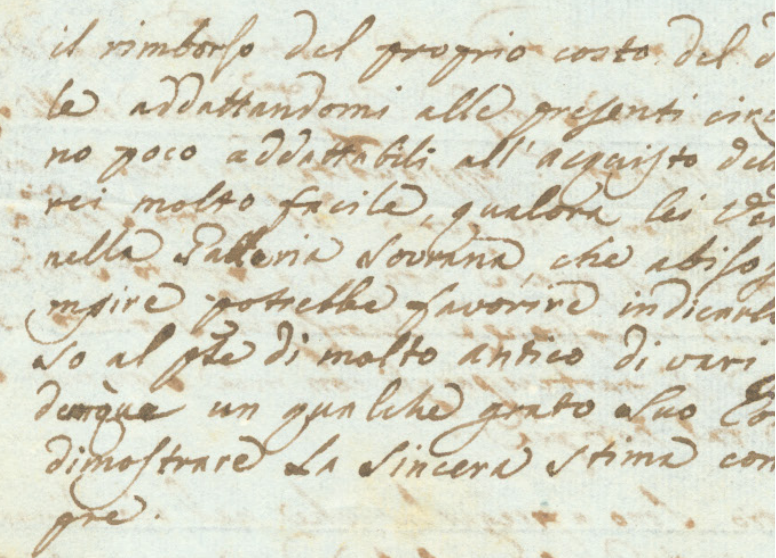 il rimborso del proprio costo del d
le addattandomi alle presenti circ
no poco addattabili all'acquisto del
rei molto facile, qualora lei
nella Galleria Sovrana, che abisog
mpire potrebbe favorire indicarl
so al pñte di molto antico di vari
dunque un qualche grato suo Co
dimostrare la sincera stima con
pre.